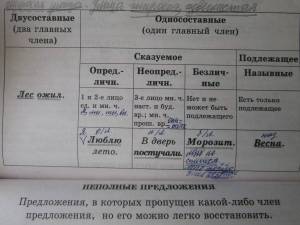 Двусоставные Односоставные
(два главных члена) (один главный член)
Сказуемое Подлежащее
Опред.-личн. Неопред.-личн. Безлич-ные Назывные
Лес ожил.
1 и 2-е лицо ед. и мн. ч.
3-е лицо мн. ч. наст. и буд. вр.; мн. ч. прош. вр.
Нет и не может быть подлежащего
Есть только подлежащее
Люблю лето.
В дверь постучали.
Морозит.
Весна.
НЕПОЛНЫЕ ПРЕДЛОЖЕНИЯ
Предложения, в которых пропущен какой-либо член
предложения, но его можно легко восстановить.